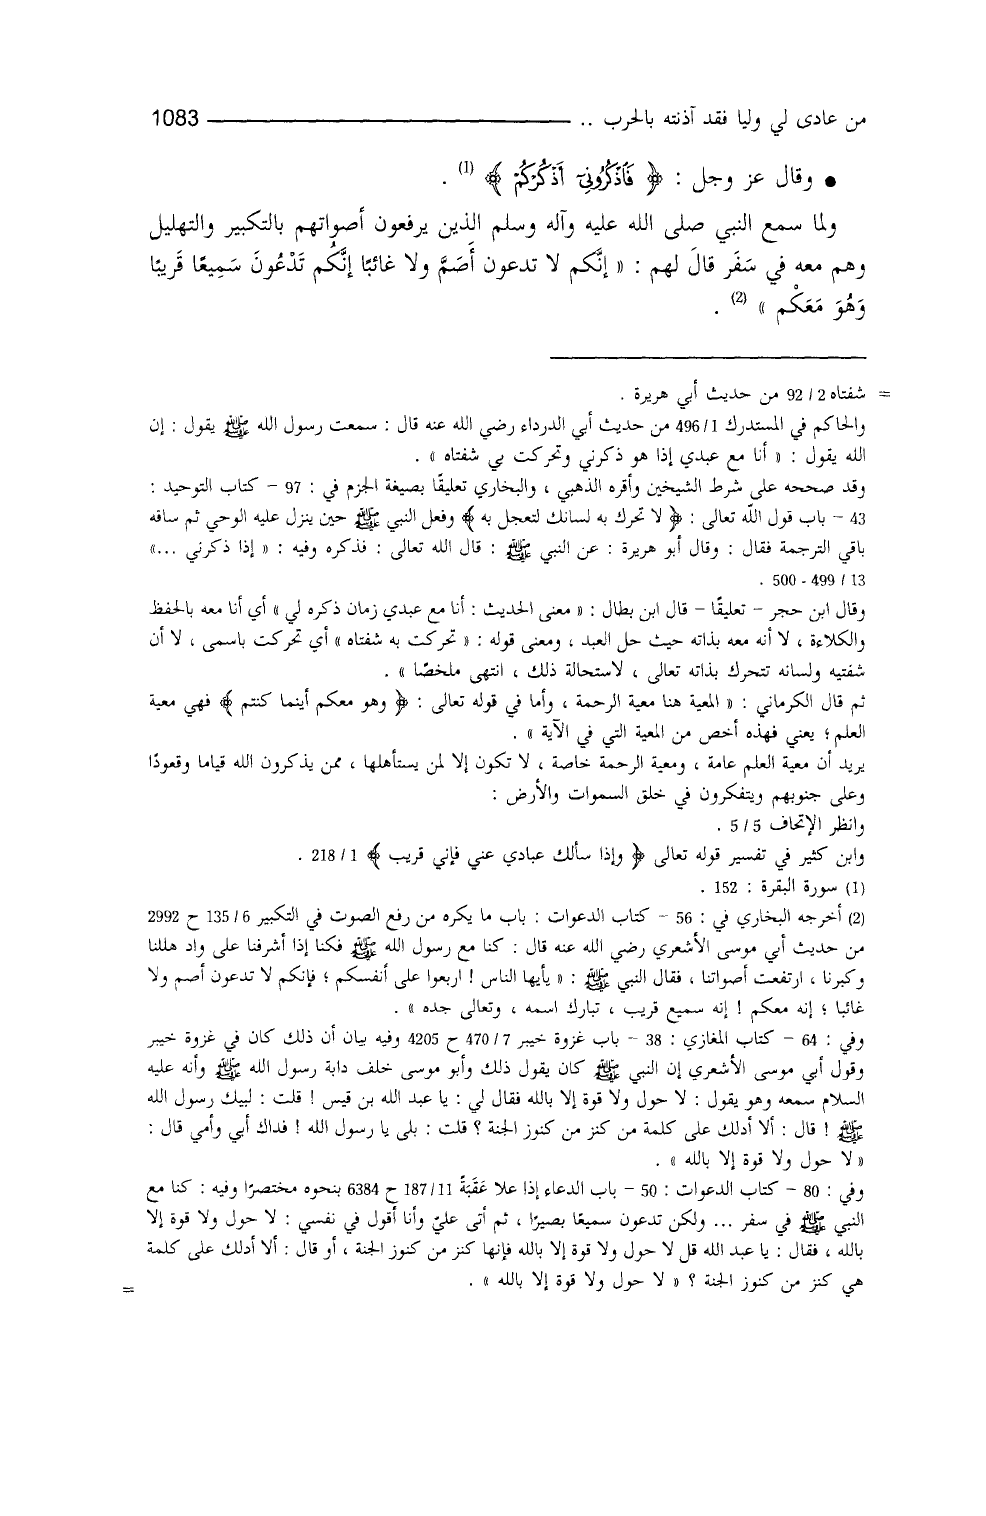 من عادى لي وليا فقد آذنته بالحرب .. 1083
● وقال عز وجل : ﴿ فَاذْكُرُونِي أَذْكُرْكُمْ ﴾ (1) .
ولما سمع النبي صلى الله عليه وآله وسلم الذين يرفعون أصواتهم بالتكبير والتهليل
وهم معه في سَفَر قالَ لهم : « إنَّكم لا تدعون أَصَمَّ ولا غائبًا إنَّكُم تَدْعُونَ سَمِيعًا قَريبًا
وَهُوَ مَعَكْم » (2) .
= شفتاه 2 / 92 من حديث أبي هريرة .
والحاكم في المستدرك 1/ 496 من حديث أبي الدرداء رضي الله عنه قال : سمعت رسول الله ﷺ يقول : إن
الله يقول : « أنا مع عبدي إذا هو ذكرني وتحركت بي شفتاه » .
وقد صححه على شرط الشيخين وأقره الذهبي ، والبخاري تعليقًا بصيغة الجزم في : 97 – كتاب التوحيد :
43 – باب قول اللّه تعالى : ﴿ لا تحرك به لسانك لتعجل به ﴾ وفعل النبي ﷺ حين ينزل عليه الوحي ثم ساقه
باقي الترجمة فقال : وقال أبو هريرة : عن النبي ﷺ : قال الله تعالى : فذكره وفيه : « إذا ذكرني ...»
13 / 499 - 500 .
وقال ابن حجر – تعليقًا – قال ابن بطال : « معنى الحديث : أنا مع عبدي زمان ذكره لي » أي أنا معه بالحفظ
والكلاءة ، لا أنه معه بذاته حيث حل العبد ، ومعنى قوله : « تحركت به شفتاه » أي تحركت باسمى ، لا أن
شفتيه ولسانه تتحرك بذاته تعالى ، لاستحالة ذلك ، انتهى ملخصًا » .
ثم قال الكرماني : « المعية هنا معية الرحمة ، وأما في قوله تعالى : ﴿ وهو معكم أينما كنتم ﴾ فهي معية
العلم ؛ يعني فهذه أخص من المعية التي في الآية » .
يريد أن معية العلم عامة ، ومعية الرحمة خاصة ، لا تكون إلا لمن يستأهلها ، ممن يذكرون الله قياما وقعودًا
وعلى جنوبهم ويتفكرون في خلق السموات والأرض :
وانظر الإتحاف 5 / 5 .
وابن كثير في تفسير قوله تعالى ﴿ وإذا سألك عبادي عني فإني قريب ﴾ 1 / 218 .
(1) سورة البقرة : 152 .
(2) أخرجه البخاري في : 56 – كتاب الدعوات : باب ما يكره من رفع الصوت في التكبير 6 / 135 ح 2992
من حديث أبي موسى الأشعري رضي الله عنه قال : كنا مع رسول الله ﷺ فكنا إذا أشرفنا على واد هللنا
وكبرنا ، ارتفعت أصواتنا ، فقال النبي ﷺ : « يأيها الناس ! اربعوا على أنفسكم ؛ فإنكم لا تدعون أصم ولا
غائبا ؛ إنه معكم ! إنه سميع قريب ، تبارك اسمه ، وتعالى جده » .
وفي : 64 – كتاب المغازي : 38 – باب غزوة خيبر 7 / 470 ح 4205 وفيه بيان أن ذلك كان في غزوة خيبر
وقول أبي موسى الأشعري إن النبي ﷺ كان يقول ذلك وأبو موسى خلف دابة رسول الله ﷺ وأنه عليه
السلام سمعه وهو يقول : لا حول ولا قوة إلا بالله فقال لي : يا عبد الله بن قيس ! قلت : لبيك رسول الله
ﷺ ! قال : ألا أدلك على كلمة من كنز من كنوز الجنة ؟ قلت : بلى يا رسول الله ! فداك أبي وأمي قال :
« لا حول ولا قوة إلا بالله » .
وفي : 80 – كتاب الدعوات : 50 – باب الدعاء إذا علا عَقَبَةً 11 / 187 ح 6384 بنحوه مختصرًا وفيه : كنا مع
النبي ﷺ في سفر ... ولكن تدعون سميعًا بصيرًا ، ثم أتى عليّ وأنا أقول في نفسي : لا حول ولا قوة إلا
بالله ، فقال : يا عبد الله قل لا حول ولا قوة إلا بالله فإنها كنز من كنوز الجنة ، أو قال : ألا أدلك على كلمة
هي كنز من كنوز الجنة ؟ « لا حول ولا قوة إلا بالله » . =